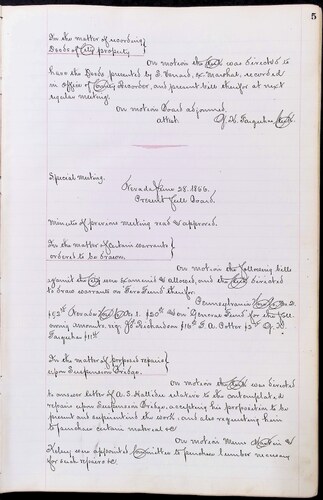 5
In the matter of recording
Deeds of City property
On motion the Clerk was directed to
have the Deeds presented by T. Venard, Ex. Marshal, recorded
in office of County Recorder, and present bill therefor at next
regular meeting.
On motion Board adjourned.
attest Clerk.
Special meeting.
Nevada June 28. 1866.
Present full Board.
Minutes of previous meeting read & approved.
In the matter of certain warrants
ordered to be drawn.
On motion the following bills
against the City was examined & allowed, and the Clerk directed
to draw warrants on Fire Fund therefor.
Pennsylvania No 2.
Nevada No 1. $20 00 & on General Fund for the foll-
owing amounts, viz. Richardson G. A. Potter
Farquhar
In the matter of proposed repairs
upon Suspension Bridge.
On motion the Clerk was directed
to answer letter of A. S. Hallidie relative to the contemplated
repairs upon Suspension Bridge, accepting his proposition to be
present and superintend the work and also requesting him
to purchase certain material &c
On motion Messrs &
Kelsey was appointed Committee to purchase lumber necessary
for such repairs &c.